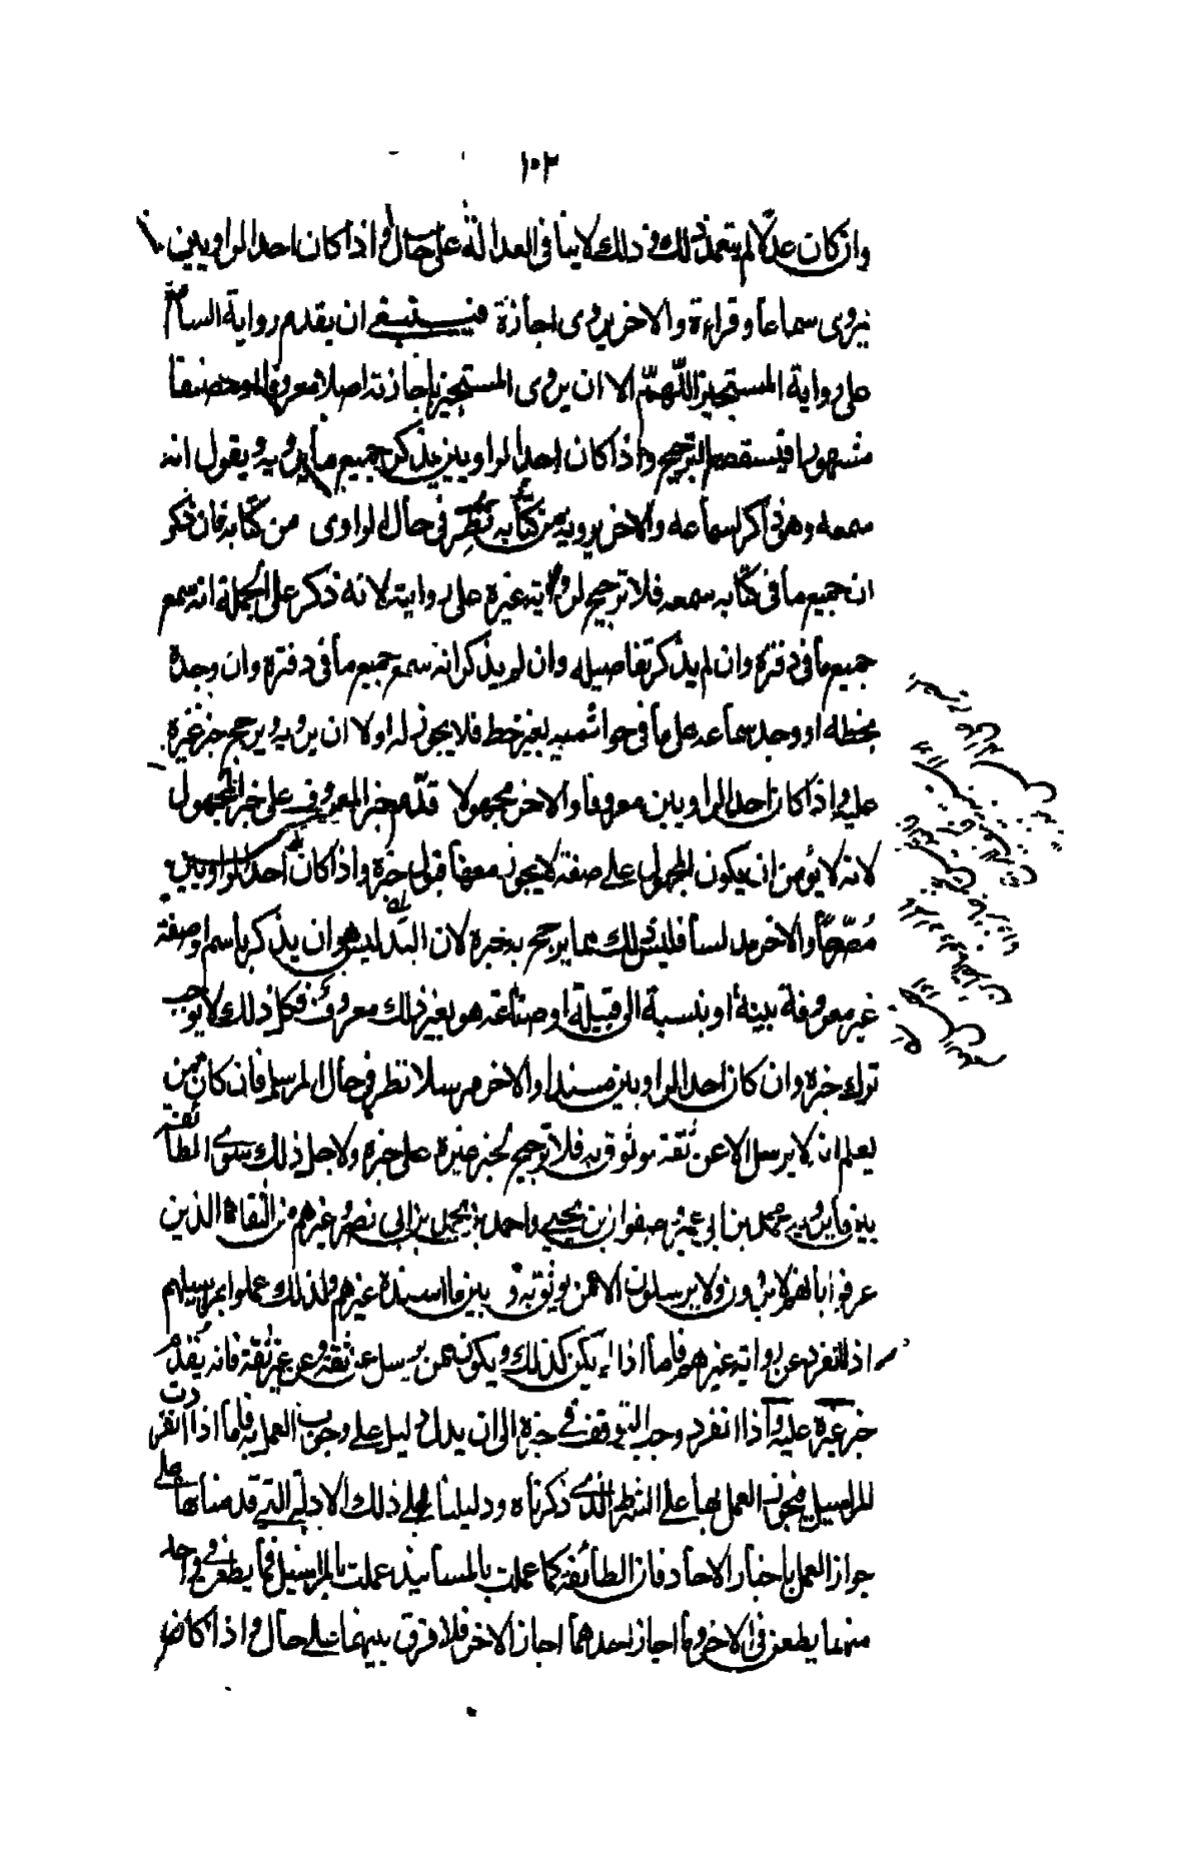 ١٠٢
وان كان عدلا لم يتعمد ذلك وذلك لا ينافى العدالة على حال واذا كان احد الراويين
يروى سماعا وقراءة والاخر يروى اجازة فينبغى ان يقدم رواية السامع
على رواية المستجيز اللّهمّ الا ان يروى المستجيز باجازته اصلا معروفا او مصنفا
مشهورا فيسقط الترجيح واذا كان احد الراويين يذكر جميع ما يرويه ويقول انه
سمعه وهو ذاكر لسماعه والاخر يرويه من كتابه نُظِر فى حال الراوى من كتابه فان ذكر
ان جميع ما فى كتابه سمعه فلا ترجيح لرواية غيره على روايته لانه ذكر على الجملة انه سمع
جميع ما فى دفتره وان لم يذكر تفاصيله وان لم يذكر انه سمع جميع ما فى دفتره وان وجده
بخطه او وجد سماعه على ما فى حواشيه بغير خط فلا يجوز له اولا ان يرويه ويرجح خبر غيره
عليه واذا كان احد الراويين معروفا والاخر مجهولا قدّم خبر المعروف على خبر المجهول
لانه لا يؤمن ان يكون المجهول على صفة لا يجوز معها قبول خبره واذا كان احد الراويين
مُصّحًا والاخر مدلسا فليس ذلك مما يرجح به خبره لان التدليس هو ان يذكر باسم او صفة
غير معروفة بينة او بنسبة الى قبيلة او صناعة هو بغير ذلك معروف فكل ذلك لا يوجب
ترك خبره وان كان احد الراويين مسندا والاخر مرسلا نظر فى حال المرسل فان كان ممن
يعلم انه لا يرسل الا عن ثقة موثوق به فلا ترجيح لخبر غيره على خبره ولاجل ذلك سوى الطائفة
بين ما يرويه محمد بن ابى عمير وصفوان بن يحيى واحمد بن محمد بن ابى نصر وغيرهم من الثقات الذين
عرفوا بانهم لا يروون ولا يرسلون الا عمن يوثق به وبين ما اسنده غيرهم ولذلك عملوا بمراسيلهم
اذا انفرد عن رواية غيرهم فاما اذا لم يكن كذلك ويكون ممن يرسل عن ثقة وعن غير ثقة فانه يُقدم
خبر غيره عليه واذا انفرد وجب التوقف فى خبره الى ان يدل دليل على وجوب العمل به فاما اذا انفردت
المراسيل فيجوز العمل بها على الشرط الذى ذكرناه ودليلنا على ذلك الادلة التى قدمناها على
جواز العمل باخبار الاحاد فان الطائفة كما عملت بالمسانيد عملت بالمراسيل فما يطعن فى واحد
منهما يطعن فى الاخر وما اجاز احدهما اجاز الاخر فلا فرق بينهما على حال واذا كان